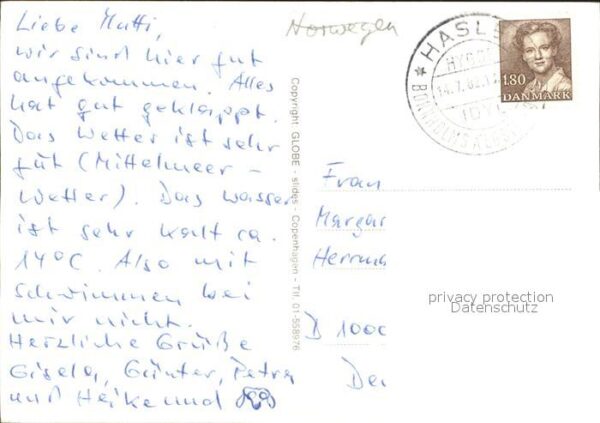 Liebe Mutti,
wir sind hier gut
angekommen. Alles
hat gut geklappt.
Das Wetter ist sehr
gut (Mittelmeer-
Wetter). Das Wasser
ist sehr kalt ca.
14°C. Also mit
schwimmen bei
mir nicht.
Herzliche Grüße
Gisela, Günter, Petra
und Heike und
Norwegen
Copyright GLOBE - slides - Copenhagen - Tlf. 01-558976
HASLE
BORNHOLMS
1.80
DANMARK
Frau
Margar
Herrma
privacy protection
Datenschutz
D 1000